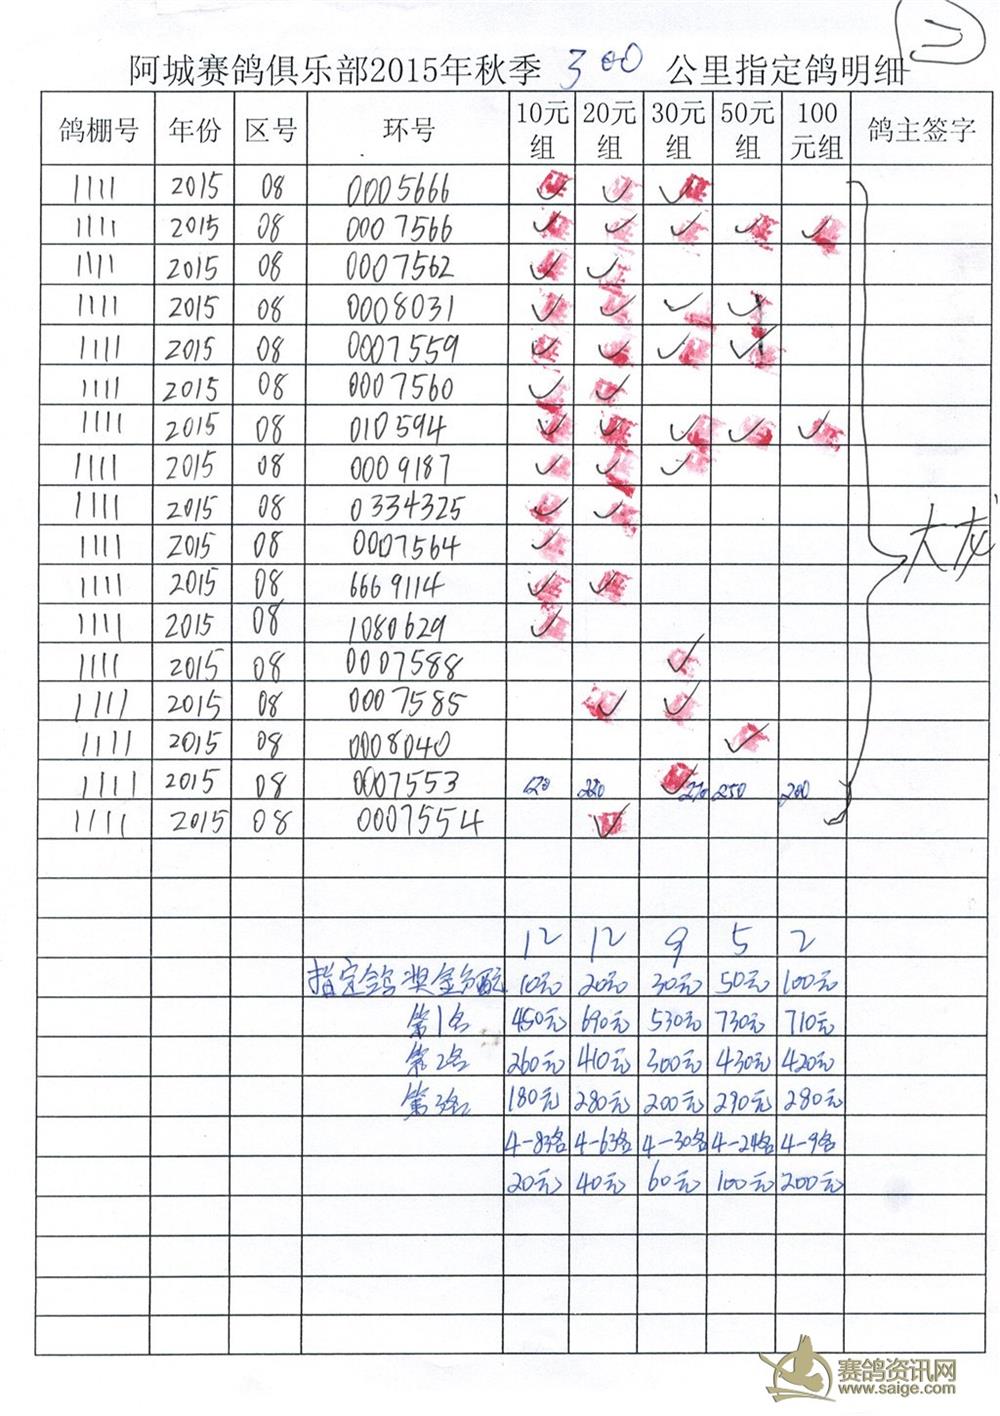 二
阿城赛鸽俱乐部2015年秋季 300 公里指定鸽明细
鸽棚号 年份 区号 环号 10元组 20元组 30元组 50元组 100元组 鸽主签字
1111 2015 08 0005666 ✓ ✓ ✓
1111 2015 08 0007566 ✓ ✓ ✓ ✓ ✓
1111 2015 08 0007562 ✓ ✓
1111 2015 08 0008031 ✓ ✓ ✓ ✓
1111 2015 08 0007559 ✓ ✓ ✓ ✓
1111 2015 08 0007560 ✓ ✓
1111 2015 08 010594 ✓ ✓ ✓ ✓ ✓
1111 2015 08 0009187 ✓ ✓ ✓
1111 2015 08 0334325 ✓ ✓
大龙
1111 2015 08 0007564 ✓
1111 2015 08 6669114 ✓ ✓
1111 2015 08 1080629 ✓
1111 2015 08 0007588 ✓
1111 2015 08 0007585 ✓ ✓
1111 2015 08 0008040 ✓
1111 2015 08 0007553 ✓ 250 200
1111 2015 08 0007554 ✓
12 12 9 5 2
指定鸽奖金分配 10元 20元 30元 50元 100元
第1名 450元 690元 530元 730元 710元
第2名 260元 410元 300元 430元 420元
第3名 180元 280元 200元 290元 280元
4-83名 4-63名 4-30名 4-24名 4-9名
20元 40元 60元 100元 200元
赛鸽资讯网
www.saige.com